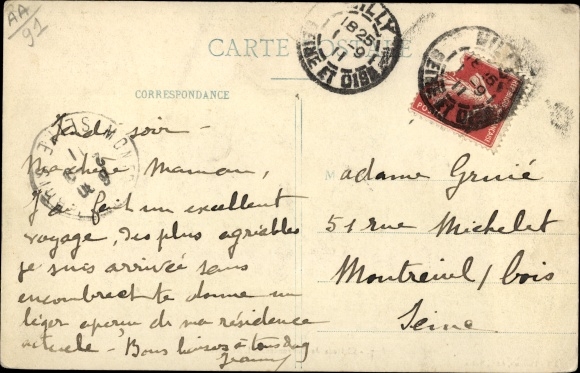 AA
91
CARTE POSTALE
CORRESPONDANCE
Jeudi soir -
Ma chère Maman,
J'ai fait un excellent
voyage, des plus agréables
je suis arrivée sans
encombre et te donne un
léger aperçu de ma résidence
actuelle - Bons baisers à tous
Jeanne
adame Grusé
51 rue Michelet
Montreuil s/ bois
Seine
18 25
1 - 9
11
SEINE ET OISE